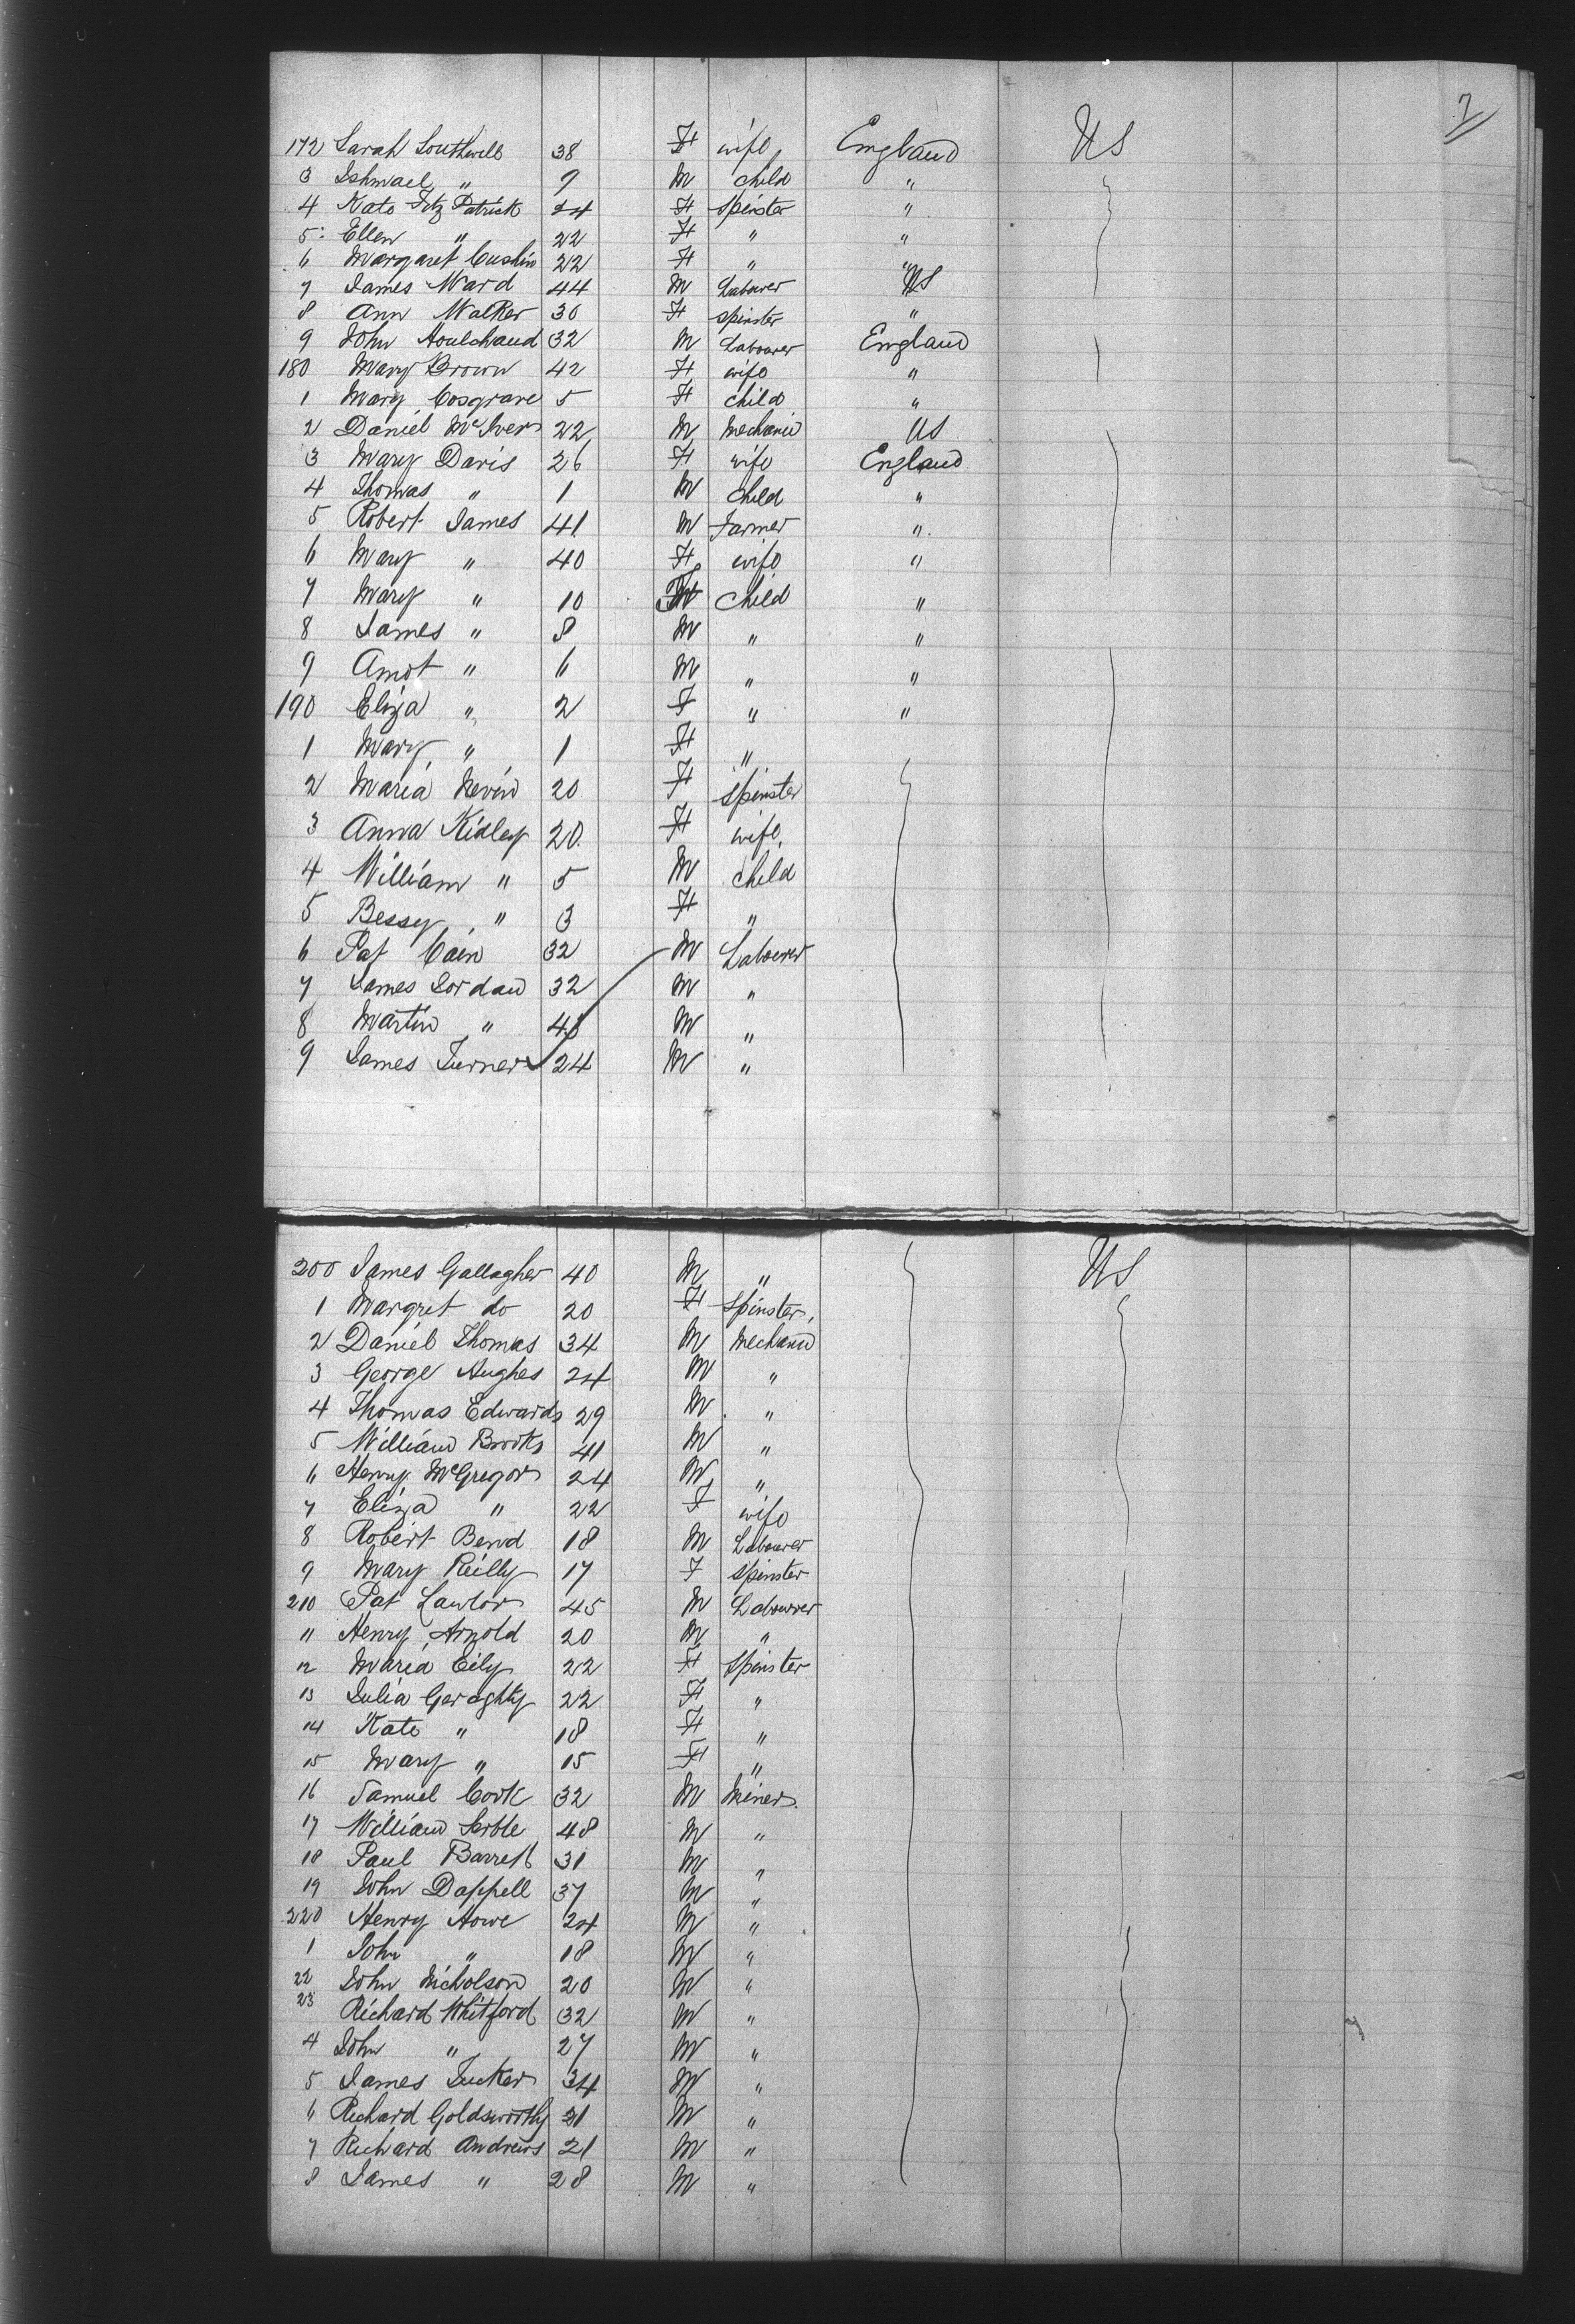 7
172 Sarah Southwell 38 F wife England US
3 Ishmael " 9 M child "
4 Kate Fitz Patrick 24 F Spinster "
5 Ellen " 22 F " "
6 Margaret Cushin 22 F " "
7 James Ward 44 M Labourer US
8 Ann Walker 30 F Spinster "
9 John 32 M Labourer England
180 Mary Brown 42 F wife "
1 Mary Cosgrave 5 F child "
2 Daniel McIver 22 M Mechanic US
3 Mary Davis 26 F wife England
4 Thomas " 1 M child "
5 Robert James 41 M Farmer "
6 Mary " 40 F wife "
7 Mary " 10 F child "
8 James " 8 M " "
9 Amot " 6 M " "
190 Eliza " 2 F " "
1 Mary " 1 F "
2 Maria Nevin 20 F Spinster
3 Anna Kidley 20 F wife
4 William " 5 M child
5 Bessy " 3 F "
6 Pat Cain 32 M Labourer
7 James Jordan 32 M "
8 Martin " M "
9 James Turner 24 M "
200 James Gallagher 40 M " US
1 Margret do 20 F Spinster
2 Daniel Thomas 34 M Mechanic
3 George Hughes 24 M "
4 Thomas Edwards 29 M "
5 William Brooks 41 M "
6 Henry McGregor 24 M "
7 Eliza " 22 F wife
8 Robert 18 M Labourer
9 Mary Reilly 17 F Spinster
210 Pat Lawlor 45 M Labourer
11 Henry Arnold 20 M "
12 Maria Eily 22 F Spinster
13 Julia Geraghty 22 F "
14 Kate " 18 F "
15 Mary " 15 F "
16 Samuel Cook 32 M Miner
17 William 48 M "
18 Paul Barrett 31 M "
19 John Dappell 37 M "
220 Henry Howe 24 M "
1 John " 18 M "
22 John Nicholson 20 M "
23 Richard Whitford 32 M "
4 John " 27 M "
5 James Tucker 34 M "
6 Richard Goldsworthy 21 M "
7 Richard Andrews 21 M "
8 James " 28 M "